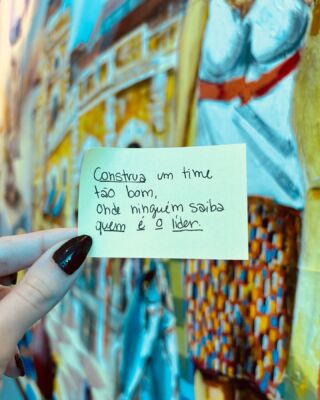 Construa um time
tão bom,
onde ninguém saiba
quem é o líder.